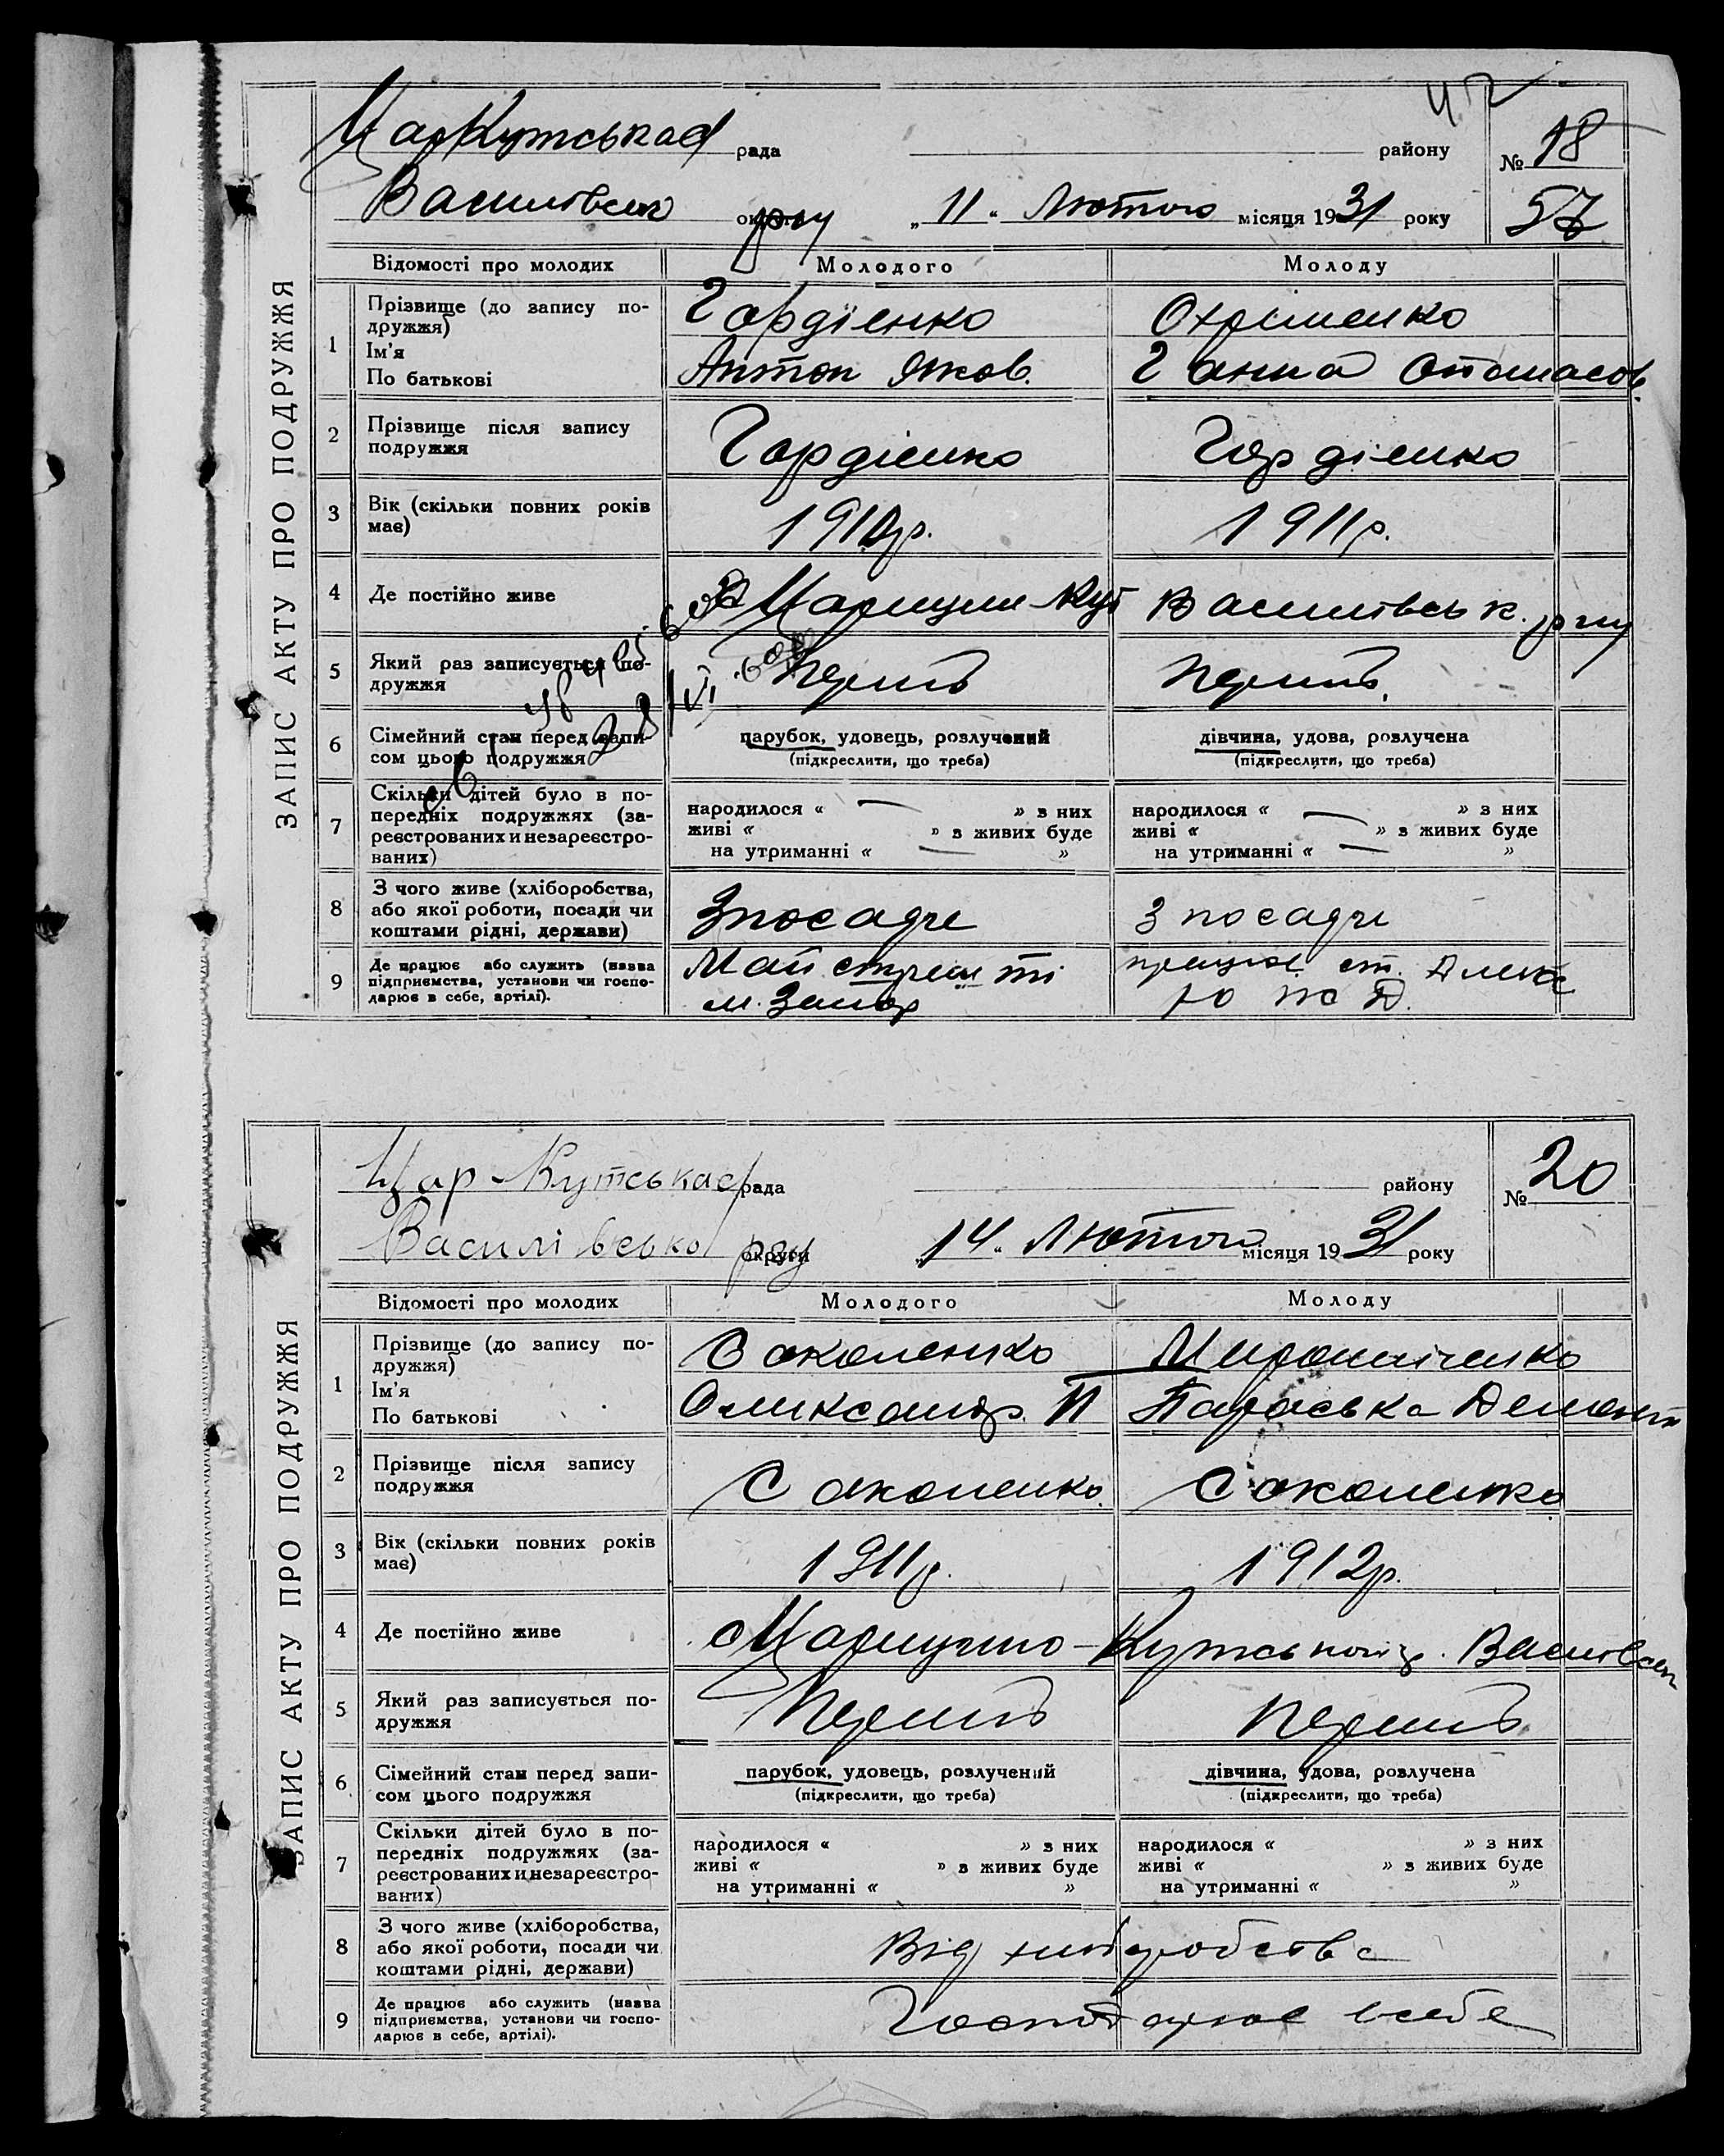 42
ЦарКутська рада району № 18
Василівськ. округи р-ну „11“ Лютого місяця 1931 року 57
ЗАПИС АКТУ ПРО ПОДРУЖЖЯ
Відомості про молодих Молодого Молоду
1 Прізвище (до запису по-
дружжя) Гордієнко Охріменко
Ім'я
По батькові Антон Яков. Ганна Опанасов.
2 Прізвище після запису
подружжя Гордієнко Гордієнко
3 Вік (скільки повних років
має) 1910р. 1911р.
4 Де постійно живе Царицин-Кут Василівськ. р-ну
5 Який раз записується по-
дружжя Перший Перший
6 Сімейний стан перед запи-
сом цього подружжя парубок, удовець, розлучений дівчина, удова, розлучена
(підкреслити, що треба) (підкреслити, що треба)
7 Скільки дітей було в по-
передніх подружжях (за-
реєстрованих и незареєстро-
ваних) народилося « — » з них народилося « — » з них
живі « » з живих буде живі « » з живих буде
на утриманні « — » на утриманні « — »
8 З чого живе (хліборобства,
або якої роботи, посади чи
коштами рідні, держави) З посади З посади
9 Де працює або служить (назва
підприємства, установи чи госпо-
дарює в себе, артілі).
м. Запор ст.
Цар-Кутська рада району № 20
Василівсько округи р-ну „14“ Лютого місяця 1931 року
ЗАПИС АКТУ ПРО ПОДРУЖЖЯ
Відомості про молодих Молодого Молоду
1 Прізвище (до запису по-
дружжя) Соколенко Мирошніченко
Ім'я
По батькові Олександр. П Параська Демент
2 Прізвище після запису
подружжя Соколенко Соколенко
3 Вік (скільки повних років
має) 1911р. 1912р.
4 Де постійно живе с Царицино-Кутськ Василівськ
5 Який раз записується по-
дружжя Перший Перший
6 Сімейний стан перед запи-
сом цього подружжя парубок, удовець, розлучений дівчина, удова, розлучена
(підкреслити, що треба) (підкреслити, що треба)
7 Скільки дітей було в по-
передніх подружжях (за-
реєстрованих и незареєстро-
ваних) народилося « » з них народилося « » з них
живі « » з живих буде живі « » з живих буде
на утриманні « » на утриманні « »
8 З чого живе (хліборобства,
або якої роботи, посади чи
коштами рідні, держави) Від хліборобства
9 Де працює або служить (назва
підприємства, установи чи госпо-
дарює в себе, артілі). Господарює в себе